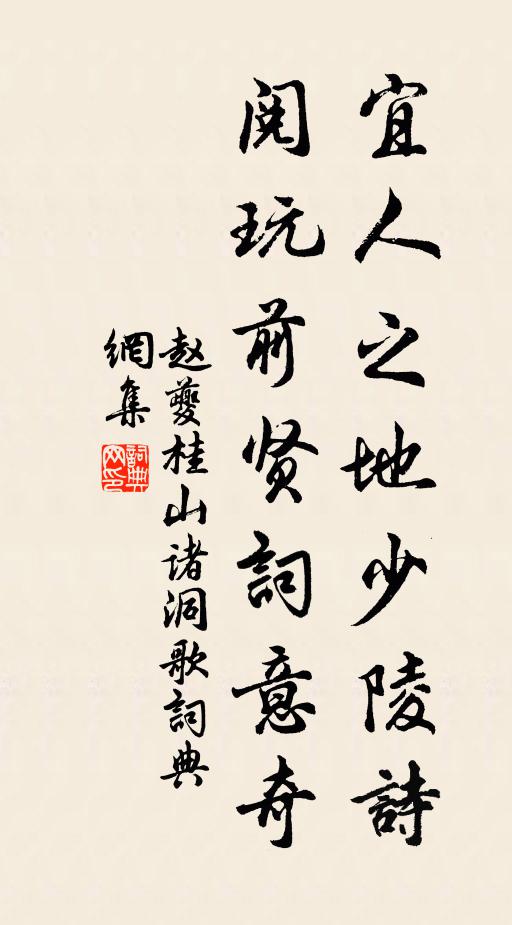 宜人之地少陵詩
阅玩前贤詞意奇
赵夔桂山诸洞歌詞典
網集
詞典
网印